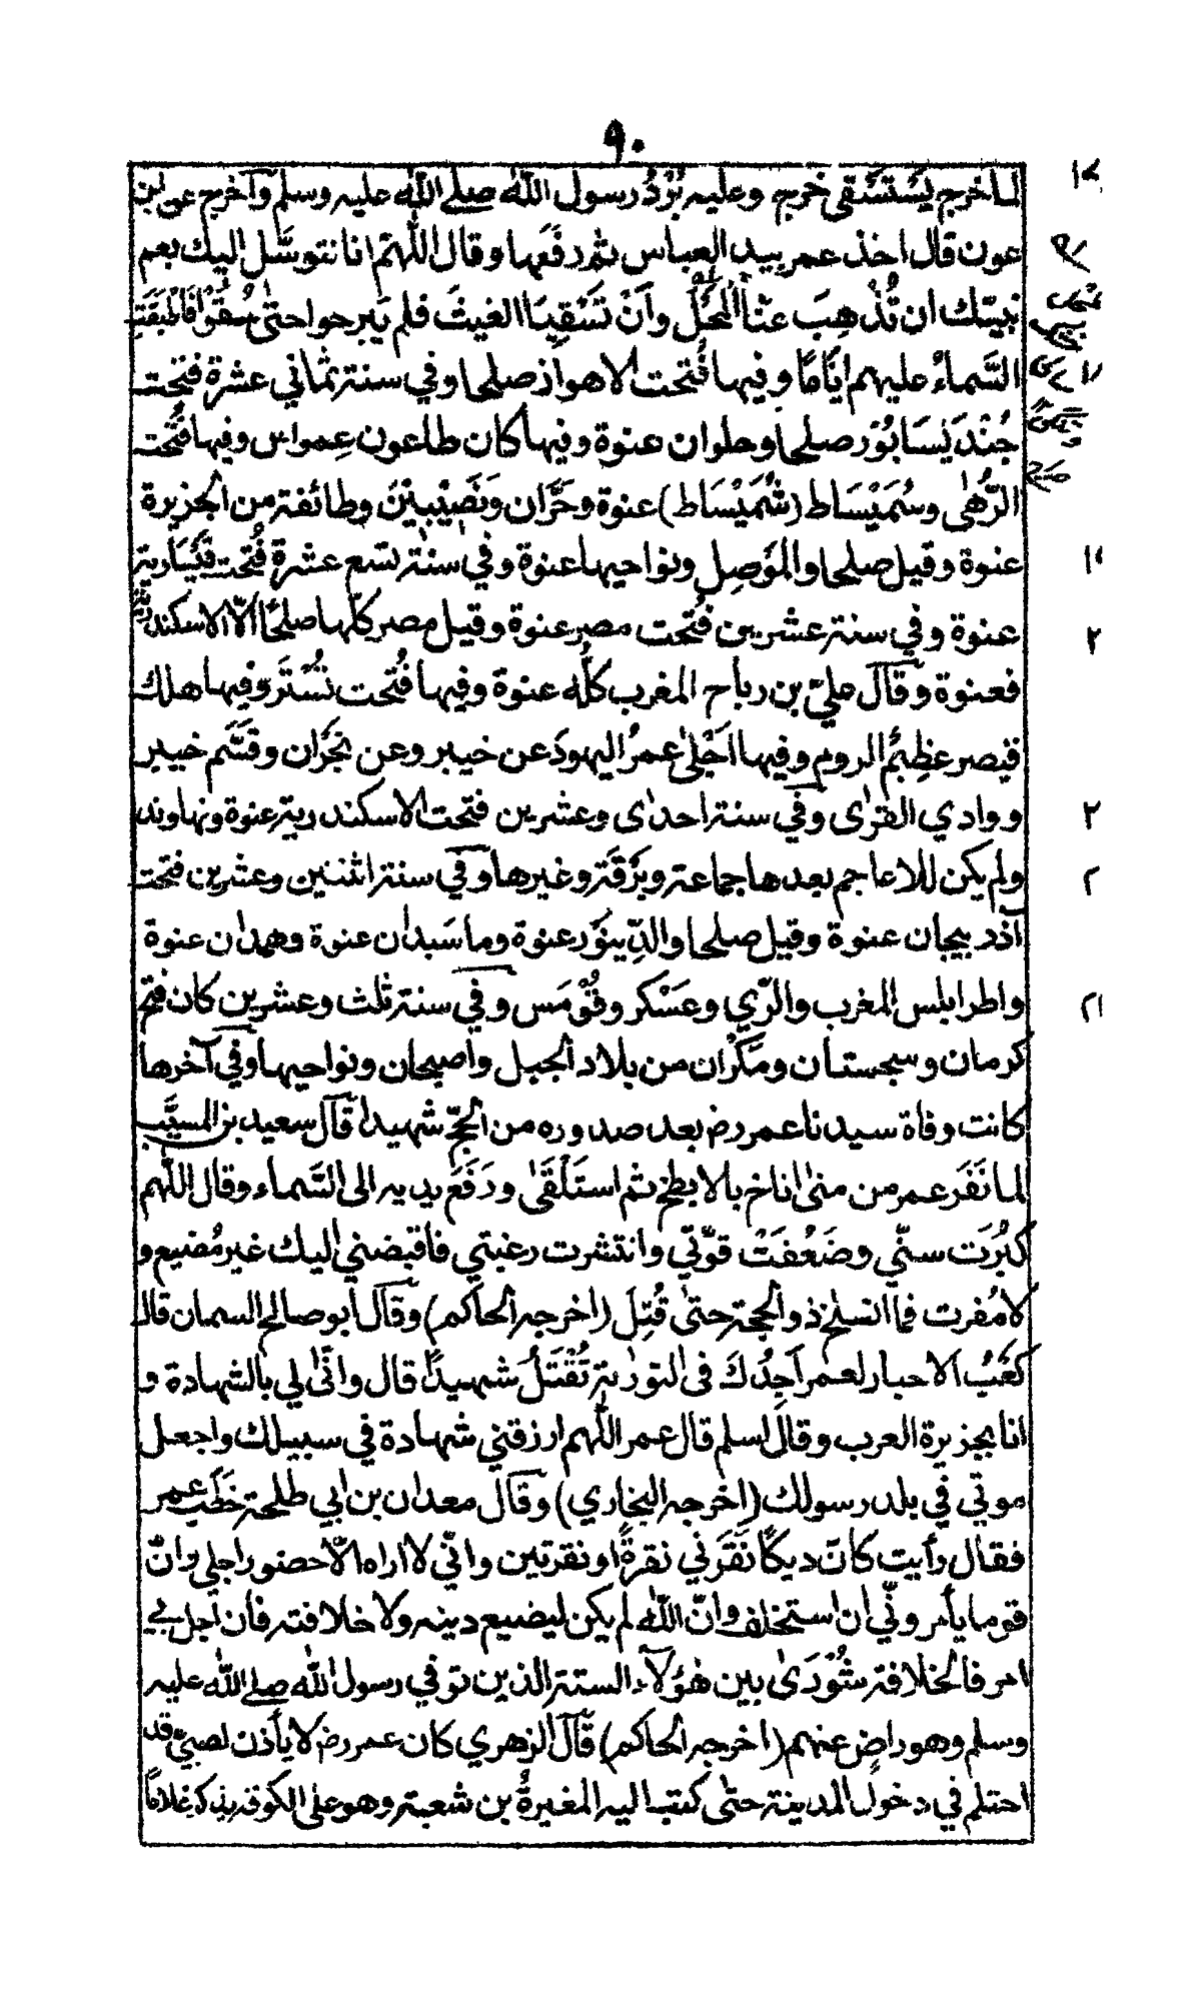 ٩٠
لما خرج يَسْتَسْقي خرج وعليه بُرْدُ رسول الله صلے الله عليه وسلم وآخرج عن ابن
عون قال اخذ عمر بيد العباس ثم رفعها وقال اللّٰهم انا نتوسّل اليك بعم
نبيّك ان تُذْهِبَ عنّا المَحْل وأنْ تَسْقِيَنا الغيثَ فلم يَبرحوا حتىٰ سُقُوْا فَاَطْبَقَتِ
السَّماءُ عليهم ايّامًا وفيها فُتحت الاهواز صلحا وفي سنة ثماني عشرة فتحت
جُنْدَ يْسَابُوْر صلحا وحلوان عنوة وفيها كان طاعون عِمواس وفيها فتُحت
الرُّهٰى وسُمَيْسَاط (شُمَيْسَاط) عنوة وحَرَّان ونَصِيْبِيْنَ وطائفة من الجزيرة
عنوة وقيل صلحا والمَوْصِل ونواحيها عنوة وفي سنة تسع عشرة فُتحت قَيْسَارية
عنوة وفي سنة عشرين فُتحت مصر عنوة وقيل مصر كلّها صلحًا الّا الاسكندريّة
فعنوة وقآل عليّ بن رباح المغرب كلُّه عنوة وفيها فُتحت تُسْتَر وفيها هلك
قيصر عظِيْمُ الروم وفيها اَجْلىٰ عمرُ اليهودَ عن خيبر وعن نجْرَان وقسَّم خيبر
ووادي القرٰى وفي سنة احدٰى وعشرين فتحت الاسكندرية عنوة ونهاوند
ولم يكن للاعاجم بعدها جماعة وبَرْقَة وغيرها وفي سنة اثنتين وعشرين فتحت
آذر بيجان عنوة وقيل صلحا والدِّينَوَر عنوة وماسَبذان عنوة وهمدان عنوة
واطرابلس المغرب والرّي وعَسْكر وقُوْمَس وفي سنة ثلث وعشرين كان فتح
كرمان وسجستان ومَكْرَان من بلاد الجبل واصبهان ونواحيها وفي آخرها
كانت وفاة سيدنا عمر رض بعد صدوره من الحجّ شهيدا قآل سعيد بن المسيَّب
لما نَفَر عمر من منىٰ اناخ بالابطح ثم استَلْقَىٰ ورَفَعَ يديه الى السَّماء وقال اللّٰهم
كَبُرَت سنّي وضَعُفَتْ قوّتي وانتشرت رعيتي فاقبضني اليك غير مُضيع و
لا مُفرت فما انسلخ ذو الحجة حتىٰ قُتِلَ (اخرجه الحاكم) وقآل ابو صالح السمان قال
كَعْبُ الاحبار لعمر اَجِدُكَ فى التورٰىة تُقْتَلُ شهيدًا قال وانّٰى لي بالشهادة و
انا بجزيرة العرب وقال اسلم قال عمر اللّٰهم ارزقني شهادة في سبيلك واجعل
موتي في بلد رسولك (اخرجه البخاري) وقآل معدان بن ابي طلحة خَطَب عمر
فقال رأيت كانّ ديكًا نَقَرَني نقرةً او نقرتين وانّي لا اراه الّا حضور اجلي وانّ
قوما يأمروني ان استخلف وانّ الله لم يكن ليضيع دينه ولا خلافته فأن عجل بي
امر فالخلافة شُوْرَىٰ بين هٰؤلآء الستة الذين توفي رسول الله صلے الله عليه
وسلم وهو راضٍ عنهم (اخرجه الحاكم) قآل الزهري كان عمر رض لا يأذن لصبيّ قد
احتلم في دخول المدينة حتٰى كتب اليه المغيرةُ بن شعبة وهو على الكوفة يذكر غلامًا